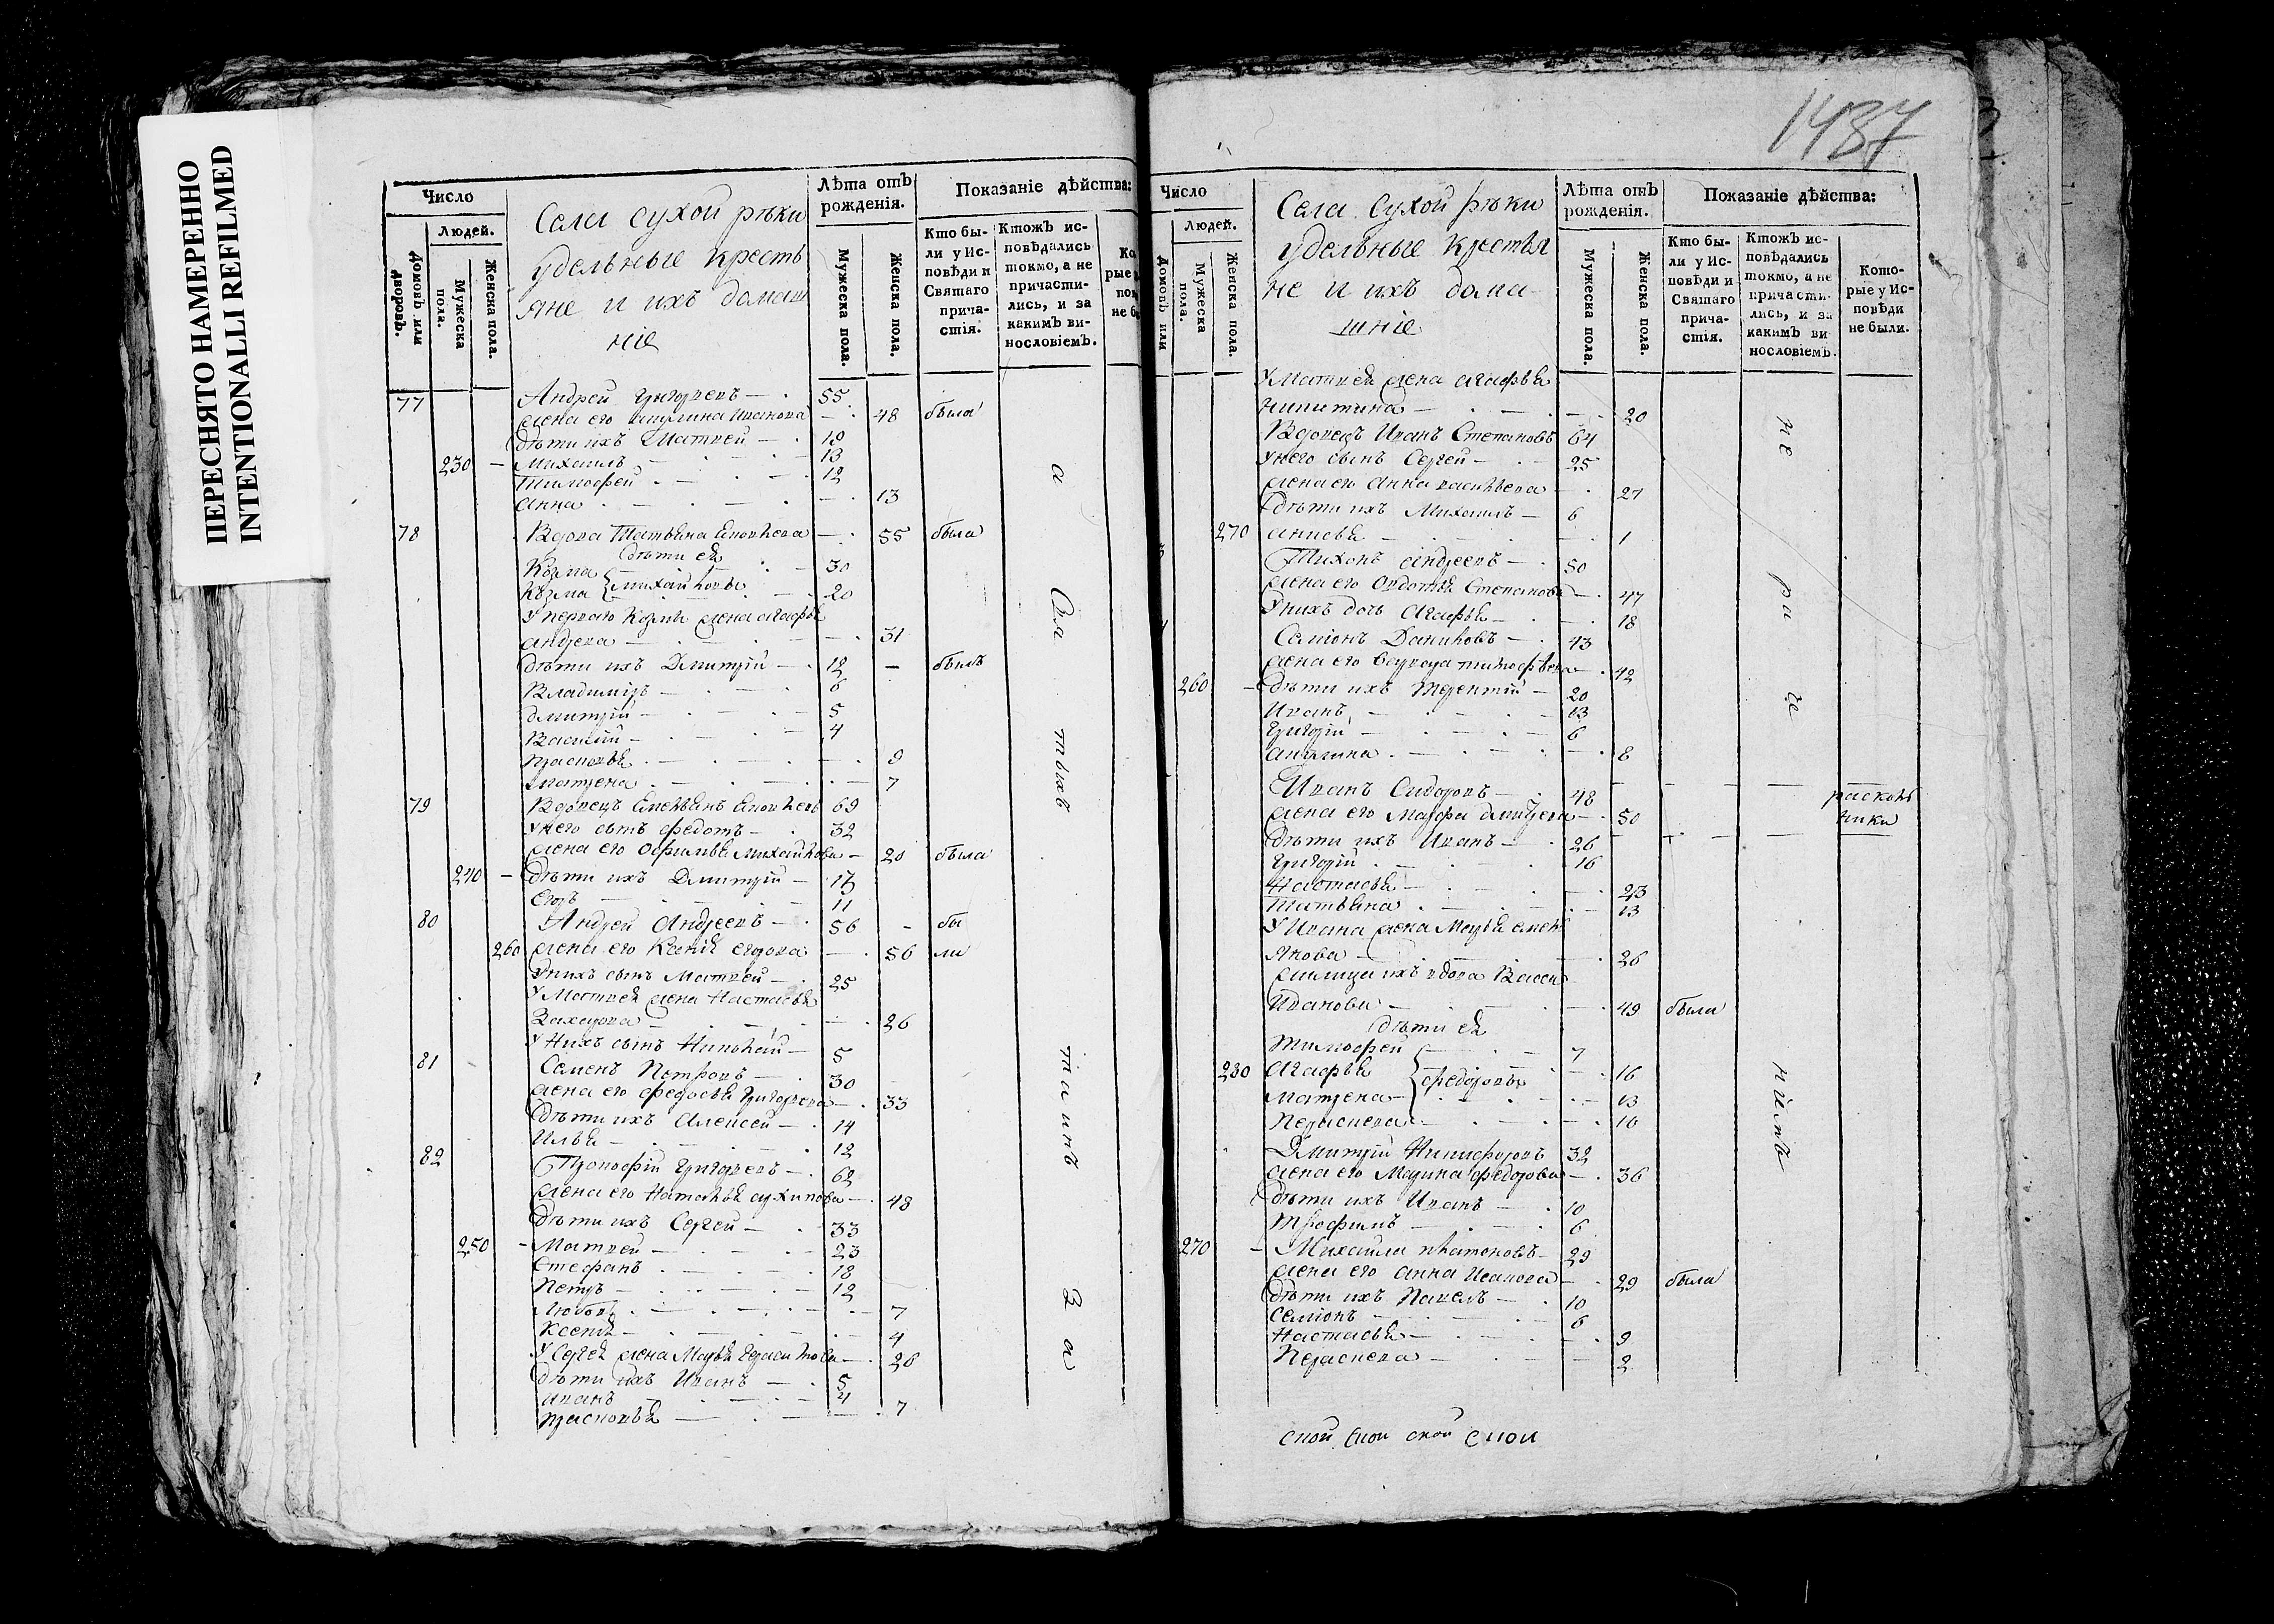 ПЕРЕСНЯТО НАМЕРЕННО
INTENTIONALLI REFILMED
Число
Людей.
Домовъ или дворовъ.
Мужеска пола.
Женска пола.
Села сухой рѣки
удельные кресть
яне и ихъ домаш
ніе
Лѣта отъ рожденія.
Мужеска пола.
Женска пола.
Показаніе дѣйства:
Кто бы-
ли у Ис-
повѣди и
Святаго
прича-
стія.
Ктожъ ис-
повѣдались
токмо, а не
причасти-
лись, и за
какимъ ви-
нословіемъ.
77 Андрей Григорьевъ 55
жена его Акулина Иванова 48 была
дѣти ихъ Матвей 19
230 Михаилъ 13
Тимофей 12
Анна 13
78 Вдова Татьяна 55 была
дѣти ея
Козма 30
Козма Михайловы 20
У перваго Козмы жена Агафья
Андреева 31
дѣти ихъ Дмитрій 12 былъ
Владимиръ 6
Дмитрій 5
Василій 4
Прасковья 9
Матрена 7
79 Вдовецъ 69
У него сынъ Федотъ 32
жена его Офимья Михайлова 20 была
240 дѣти ихъ Дмитрій 17
Егоръ 11
80 Андрей Андреевъ 56 бы
260 жена его Ксенія Егорова 56 ли
У нихъ сынъ Матвей 25
У Матвея жена Настасья
Захарова 26
У Нихъ сынъ Николай 5
81 Семенъ Петровъ 30
жена его Федосья Григорьева 33
дѣти ихъ Алексей 14
Илья 12
82 Прокофій Григорьевъ 62
жена его Наталья 48
дѣти ихъ Сергей 33
250 Матвей 23
Стефанъ 18
Петръ 12
Любовь 7
Ксенія 4
У Сергея жена Марья Герасимова 26
дѣти ихъ Иванъ 5
Иванъ 4
Прасковья 7
а
Свя
тыхъ
таинъ
За
1437
Число
Людей.
Домовъ или
Мужеска пола.
Женска пола.
Села Сухой рѣки
удельные крестья
не и ихъ дома
шніе
Лѣта отъ рожденія.
Мужеска пола.
Женска пола.
Показаніе дѣйства:
Кто бы-
ли у Ис-
повѣди и
Святаго
прича-
стія.
Ктожъ ис-
повѣдались
токмо, а не
причасти-
лись, и за
какимъ ви-
нословіемъ.
Кото-
рые у Ис-
повѣди
не были.
У Матвея жена Агафья
Никитина 20
Вдовецъ Иванъ Степановъ 64
У него сынъ Сергей 25
жена его Анна 27
дѣти ихъ Михаилъ 6
270 1
Тихонъ Андреевъ 50
жена его Овдотья Степанова 47
У нихъ дочь Агафья 18
Семіонъ Даниловъ 43
жена его Тимофѣева 42
260 дѣти ихъ Терентій 20
Иванъ 13
Григорій 6
Акулина 8
Иванъ Сидоровъ 48 расколь
жена его Марфа Дмитрева 50 ники
дѣти ихъ Иванъ 26
Григорій 16
Настасья 23
Татьяна 13
У Ивана жена Марья
26
ихъ вдова
Иванова 49 была
дѣти ея
Тимофей 7
280 Агафья Федоровы 16
Матрена 13
Параскева 10
Дмитрій Никифоровъ 32
жена его Марина Федорова 36
дѣти ихъ Иванъ 10
Трофимъ 6
270 Михаила Платоновъ 29
жена его Анна Исакова 29 была
дѣти ихъ Павелъ 10
Семіонъ 6
Настасья 9
Параскева 2
не
ра
че
ніемъ